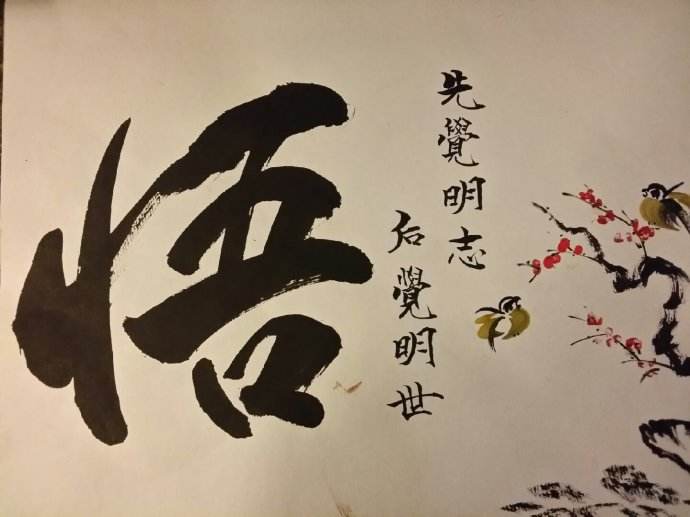 悟
先覺明志
后覺明世